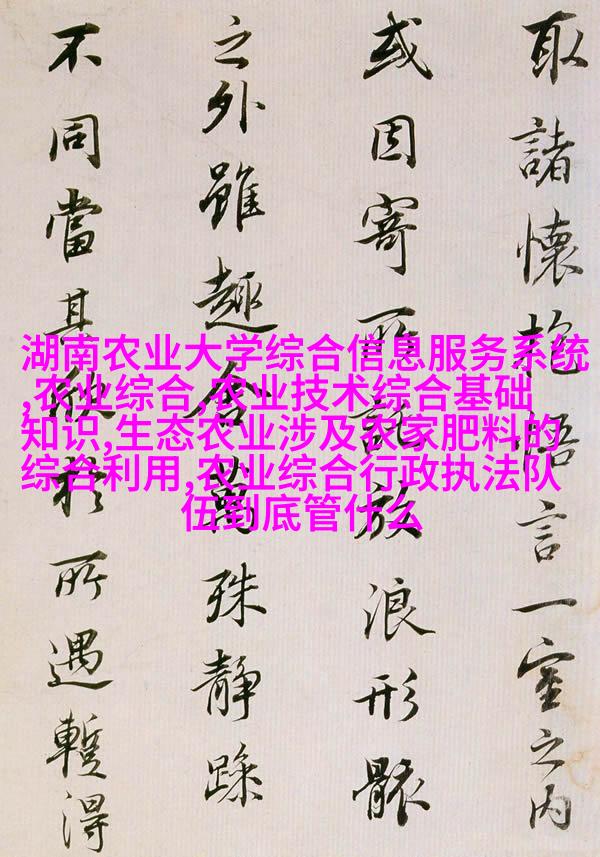 取諸懷抱悟言一室之內
或因寄所託放浪形骸
之外雖趣舍萬殊靜躁
不同當其欣於所遇暫得
湖南农业大学综合信息服务系统
,农业综合,农业技术综合基础
知识,生态农业涉及农家肥料的
综合利用,农业综合行政执法队
伍到底管什么